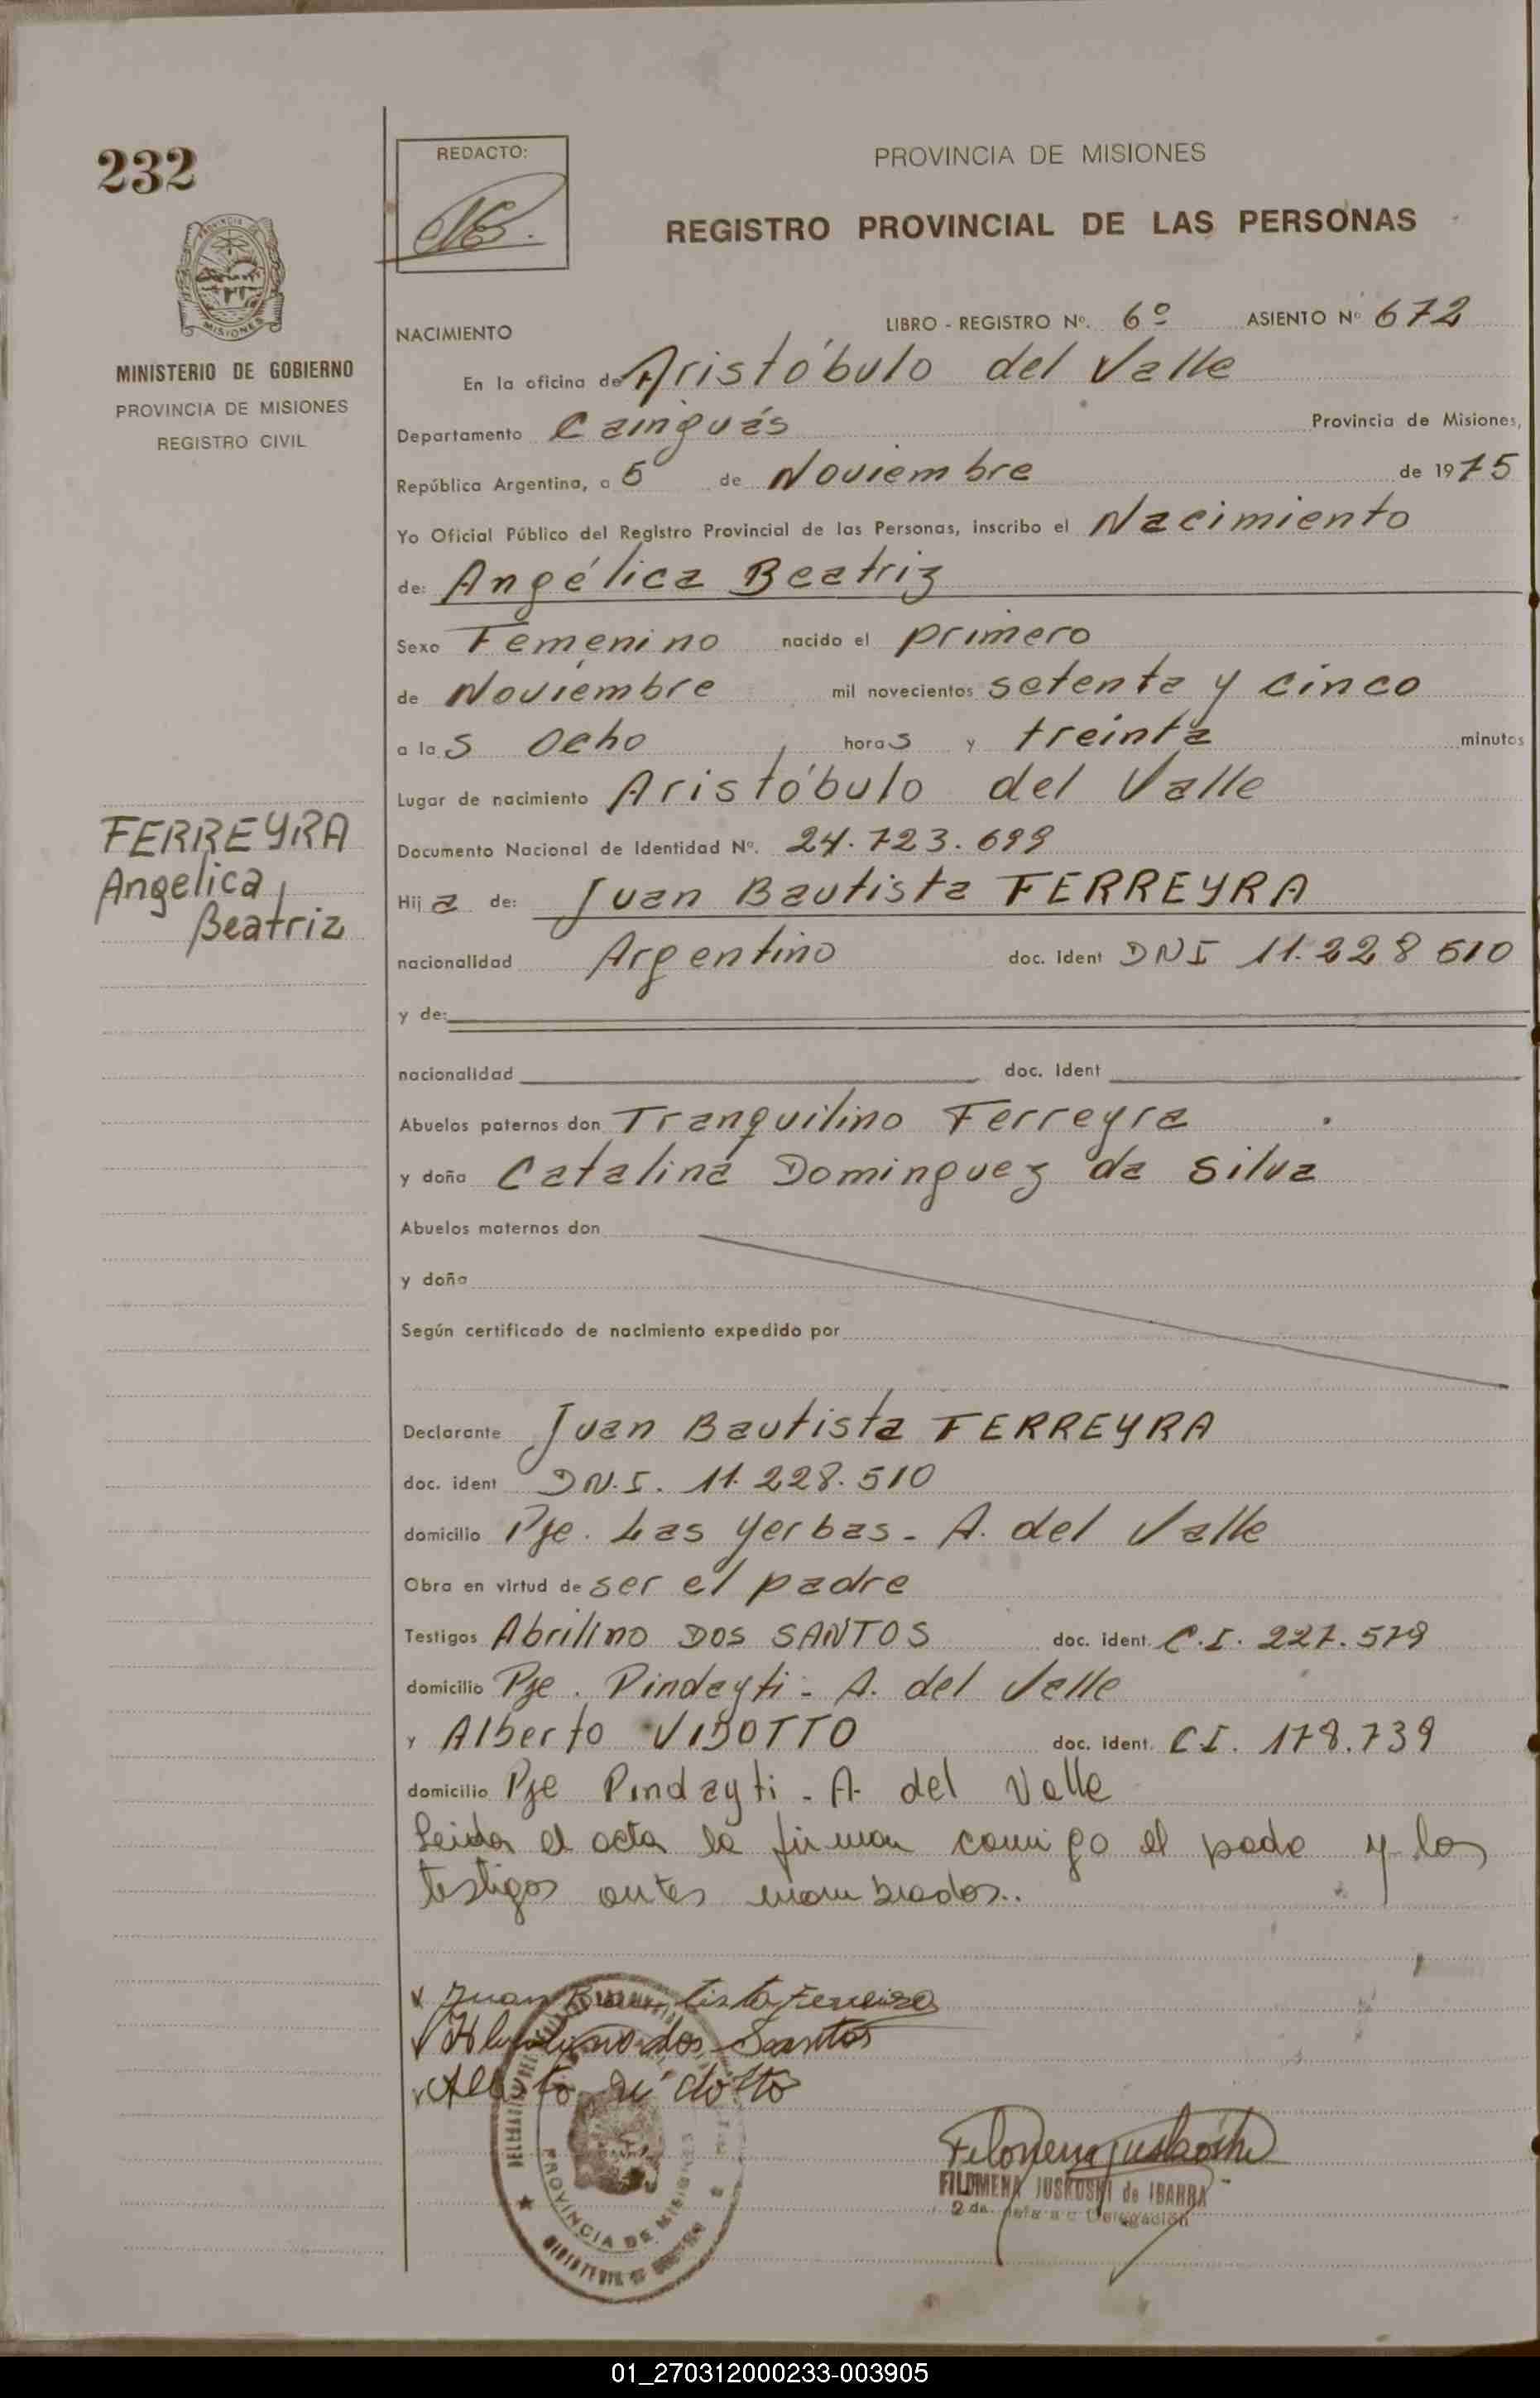 232
REDACTO:
PROVINCIA DE MISIONES
REGISTRO PROVINCIAL DE LAS PERSONAS
MISIONES
MINISTERIO DE GOBIERNO
PROVINCIA DE MISIONES
REGISTRO CIVIL
LIBRO - REGISTRO Nº. 6º ASIENTO Nº 672
NACIMIENTO
En la oficina de Aristóbulo del Valle
Departamento Cainguás Provincia de Misiones,
República Argentina, a 5 de Noviembre de 1975
Yo Oficial Público del Registro Provincial de las Personas, inscribo el Nacimiento
de: Angélica Beatriz
Sexo Femenino nacido el primero
de Noviembre mil novecientos setenta y cinco
a las ocho horas y treinta minutos
Lugar de nacimiento Aristóbulo del Valle
FERREYRA
Angelica
Beatriz
Documento Nacional de Identidad Nº. 24.723.699
Hija de: Juan Bautista FERREYRA
nacionalidad Argentino doc. Ident DNI 11.228 510
y de:
nacionalidad doc. Ident
Abuelos paternos don Tranquilino Ferreyra
y doña Catalina Dominguez da Silva
Abuelos maternos don
y doña
Según certificado de nacimiento expedido por
Declarante Juan Bautista FERREYRA
doc. ident D.N.I. 11.228.510
domicilio Pje. Las Yerbas - A. del Valle
Obra en virtud de ser el padre
Testigos Abrilino DOS SANTOS doc. ident. C.I. 227.579
domicilio Pje. Pindayti - A. del Valle
y Alberto VIDOTTO doc. ident. C.I. 178.739
domicilio Pje Pindayti - A. del Valle
Leida el acta la firman conmigo el padre y los
testigos antes nombrados..
Juan Bautista Ferreira
dos Santos
Alberto Vidotto
PROVINCIA DE MISIONES
FILOMENA JUSKOSKI de IBARRA
2da. Jefa a c Delegación
01_270312000233-003905